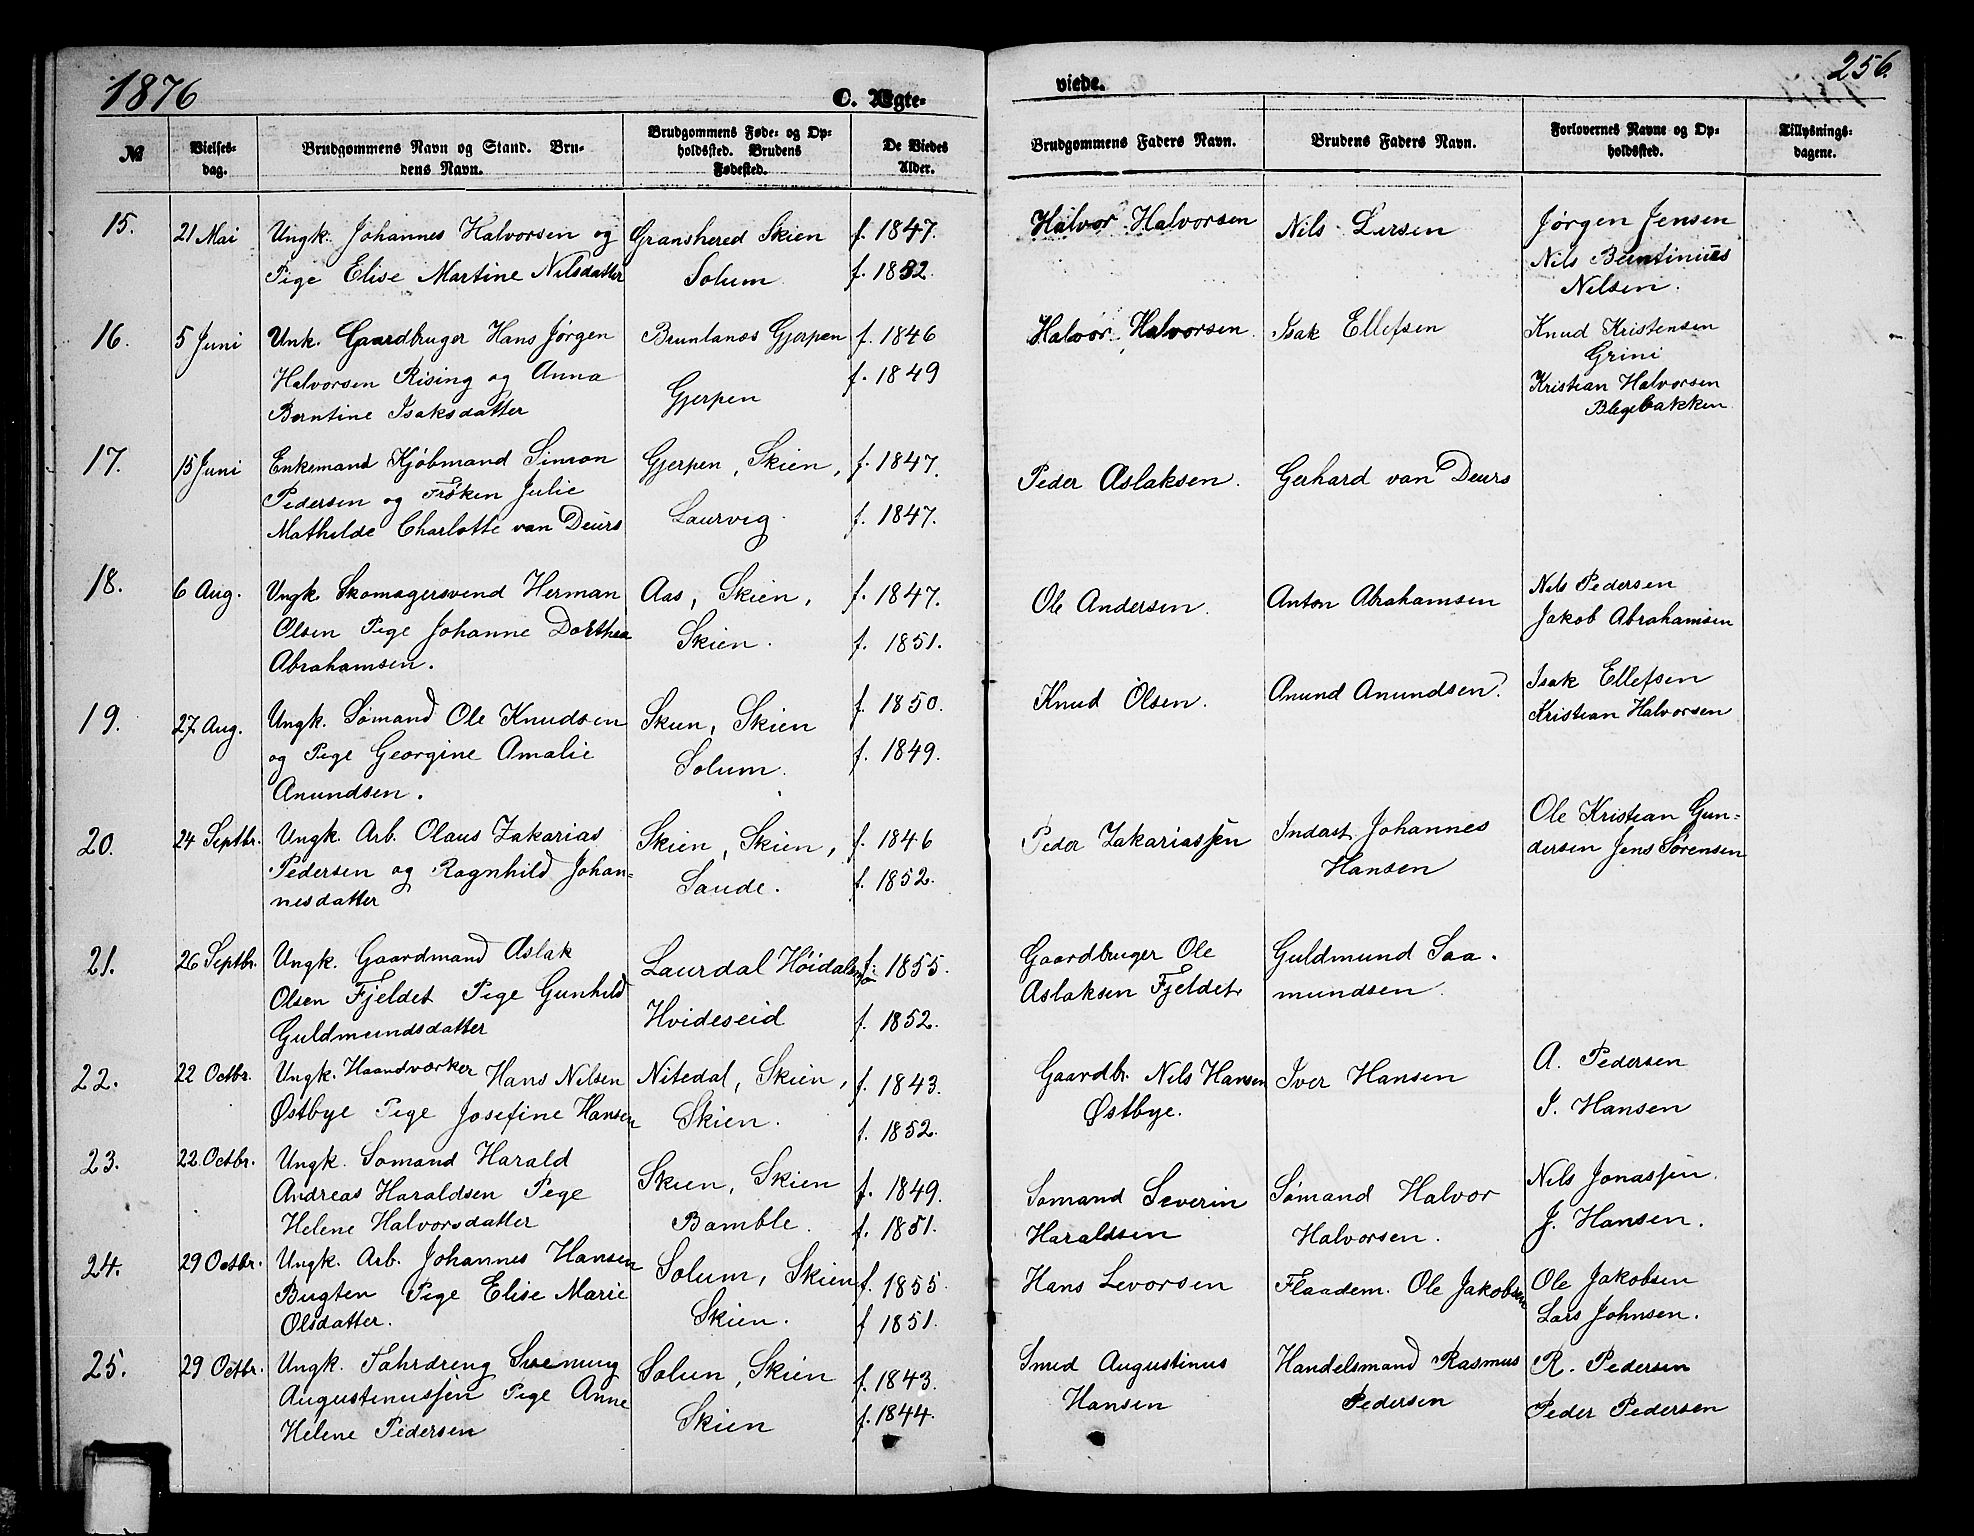 1876
C. Ægte-
viede.
256.
№
Vielses-
dag.
Brudgommens Navn og Stand. Bru-
dens Navn.
Brudgommens Føde- og Op-
holdssted. Brudens
Fødested.
De Viedes
Alder.
Brudgommens Faders Navn.
Brudens Faders Navn.
Forlovernes Navne og Op-
holdssted.
Tillysnings-
dagene.
15.
21 Mai
Ungk. Johannes Halvorsen og
Pige Elise Martine Nilsdatter
Granshered Skien
Solum
f. 1847.
f. 1852.
Halvor Halvorsen
Nils
Jørgen Jensen
Nils
Nilsen.
16.
5 Juni
Unk. Gaardbruger Hans Jørgen
Halvorsen Rising og Anna
Berntine Isaksdatter
Brunlanæs Gjerpen
Gjerpen
f. 1846
f. 1849
Halvor Halvorsen.
Isak Ellefsen
Knud Kristensen
Grini
Kristian Halvorsen
Blegebakken
17.
15 Juni
Enkemand Kjøbmand Simon
Pedersen og Frøken Julie
Mathilde Charlotte van Deurs
Gjerpen, Skien,
Laurvig.
f. 1847.
f. 1847.
Peder Aslaksen.
Gerhard van Deurs
18.
6 Aug.
Ungk. Skomagersvend Herman
Olsen Pige Johanne Dorthea
Abrahamsen.
Aas, Skien,
Skien.
f. 1847.
f. 1851.
Ole Andersen.
Anton Abrahamsen
Nils Pedersen
Jakob Abrahamsen
19.
27 Aug.
Ungk. Sømand Ole Knudsen
og Pige Georgine Amalie
Anundsen.
Skien, Skien
Solum.
f. 1850.
f. 1849.
Knud Olsen.
Anund Anundsen.
Isak Ellefsen
Kristian Halvorsen
20.
24 Septbr.
Ungk. Arb. Olaus Zakarias
Pedersen og Ragnhild Johan-
nesdatter
Skien, Skien,
Saude.
f. 1846
f. 1852.
Peder Zakariassen
Indast. Johannes
Hansen
Ole Kristian Gun-
dersen Jens Sørensen
21.
26 Septbr.
Ungk. Gaardmand Aslak
Olsen Fjeldet Pige Gunhild
Guldmundsdatter
Laurdal Høidalsmo
Hvideseid
f. 1855.
f. 1852.
Gaardbruger Ole
Aslaksen Fjeldet
Guldmund Saa-
mundsen.
22.
22 Octbr.
Ungk. Haandværker Hans Nilsen
Østbye Pige Josefine Hansen
Nitedal, Skien,
Skien.
f. 1843.
f. 1852.
Gaardbr. Nils Hansen
Østbye.
Iver Hansen
A. Pedersen
I. Hansen
23.
22. Octbr.
Ungk. Sømand Harald
Andreas Haraldsen Pige
Helene Halvorsdatter
Skien, Skien
Bamble.
f. 1849.
f. 1851.
Sømand Severin
Haraldsen
Sømand Halvor
Halvorsen.
Nils Jonassen.
J. Hansen.
24.
29 Octbr.
Ungk. Arb. Johannes Hansen
Bugten Pige Elise Marie
Olsdatter.
Solum, Skien
Skien.
f. 1855.
f 1851.
Hans Levorsen
Flaadem. Ole Jakobsen
Ole Jakobsen
Lars Johnsen.
25.
29 Octbr.
Ungk. Svenung
Augustinussen Pige Anne
Helene Pedersen
Solum, Skien
Skien
f. 1843.
f. 1844.
Smed Augustinus
Hansen
Handelsmand Rasmus
Pedersen
R. Pedersen
Peder Pedersen